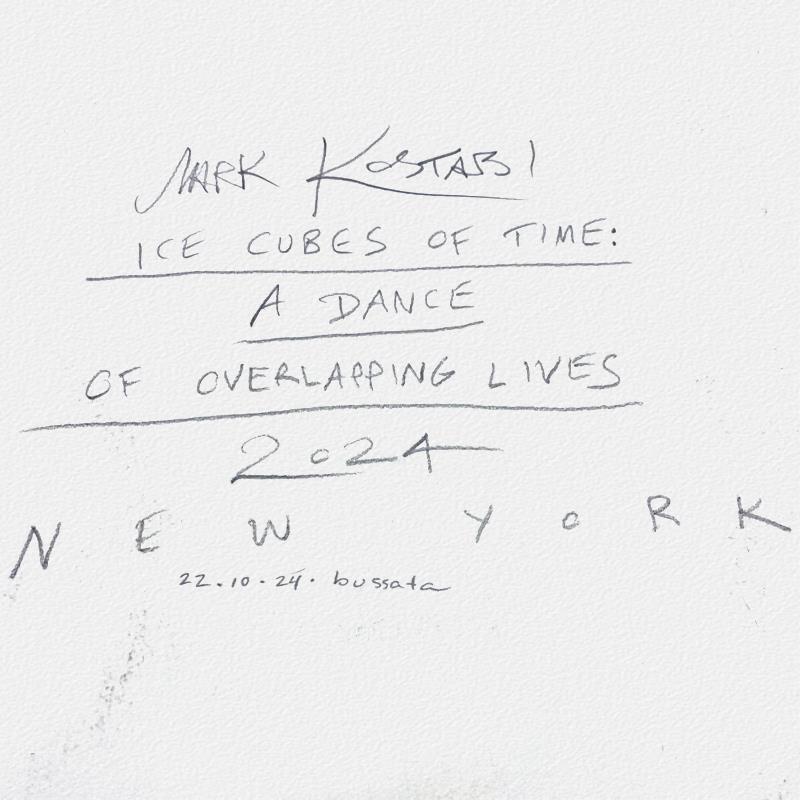 MARK KOSTABI
ICE CUBES OF TIME:
A DANCE
OF OVERLAPPING LIVES
2024
NEW YORK
22.10.24. bussata